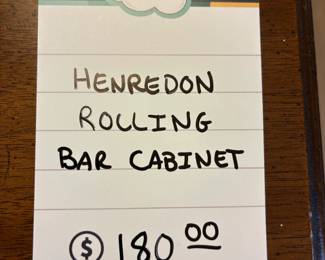 HENREDON
ROLLING
BAR CABINET
$ 180 00